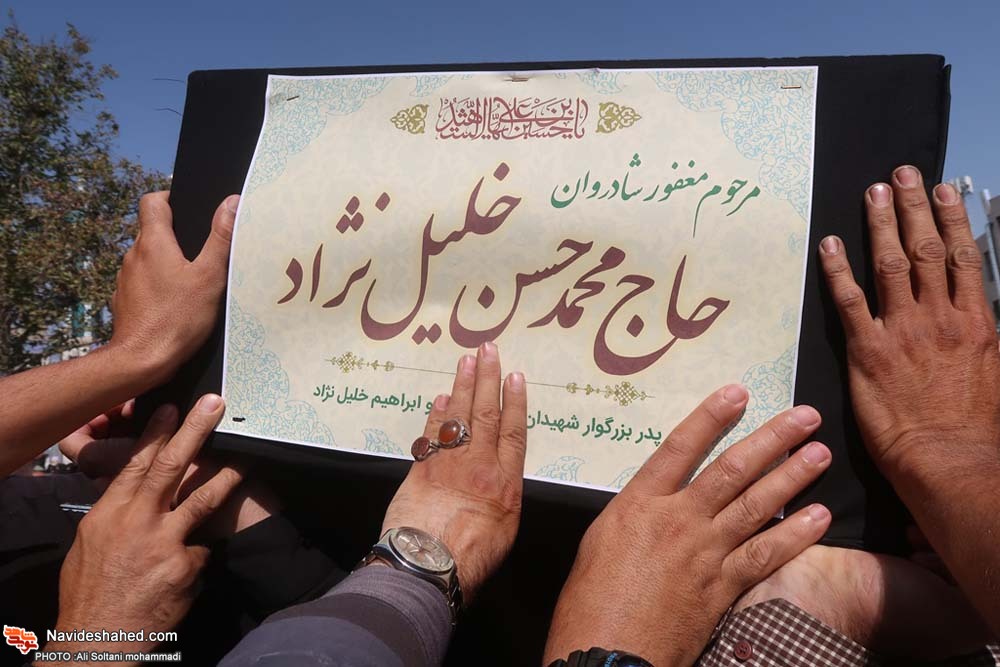 یا حسین بن علی ایها الشهید
مرحوم مغفور شادروان
حاج محمد حسن خلیل نژاد
پدر بزرگوار شهیدان
و ابراهیم خلیل نژاد
Navideshahed.com
PHOTO :Ali Soltani mohammadi